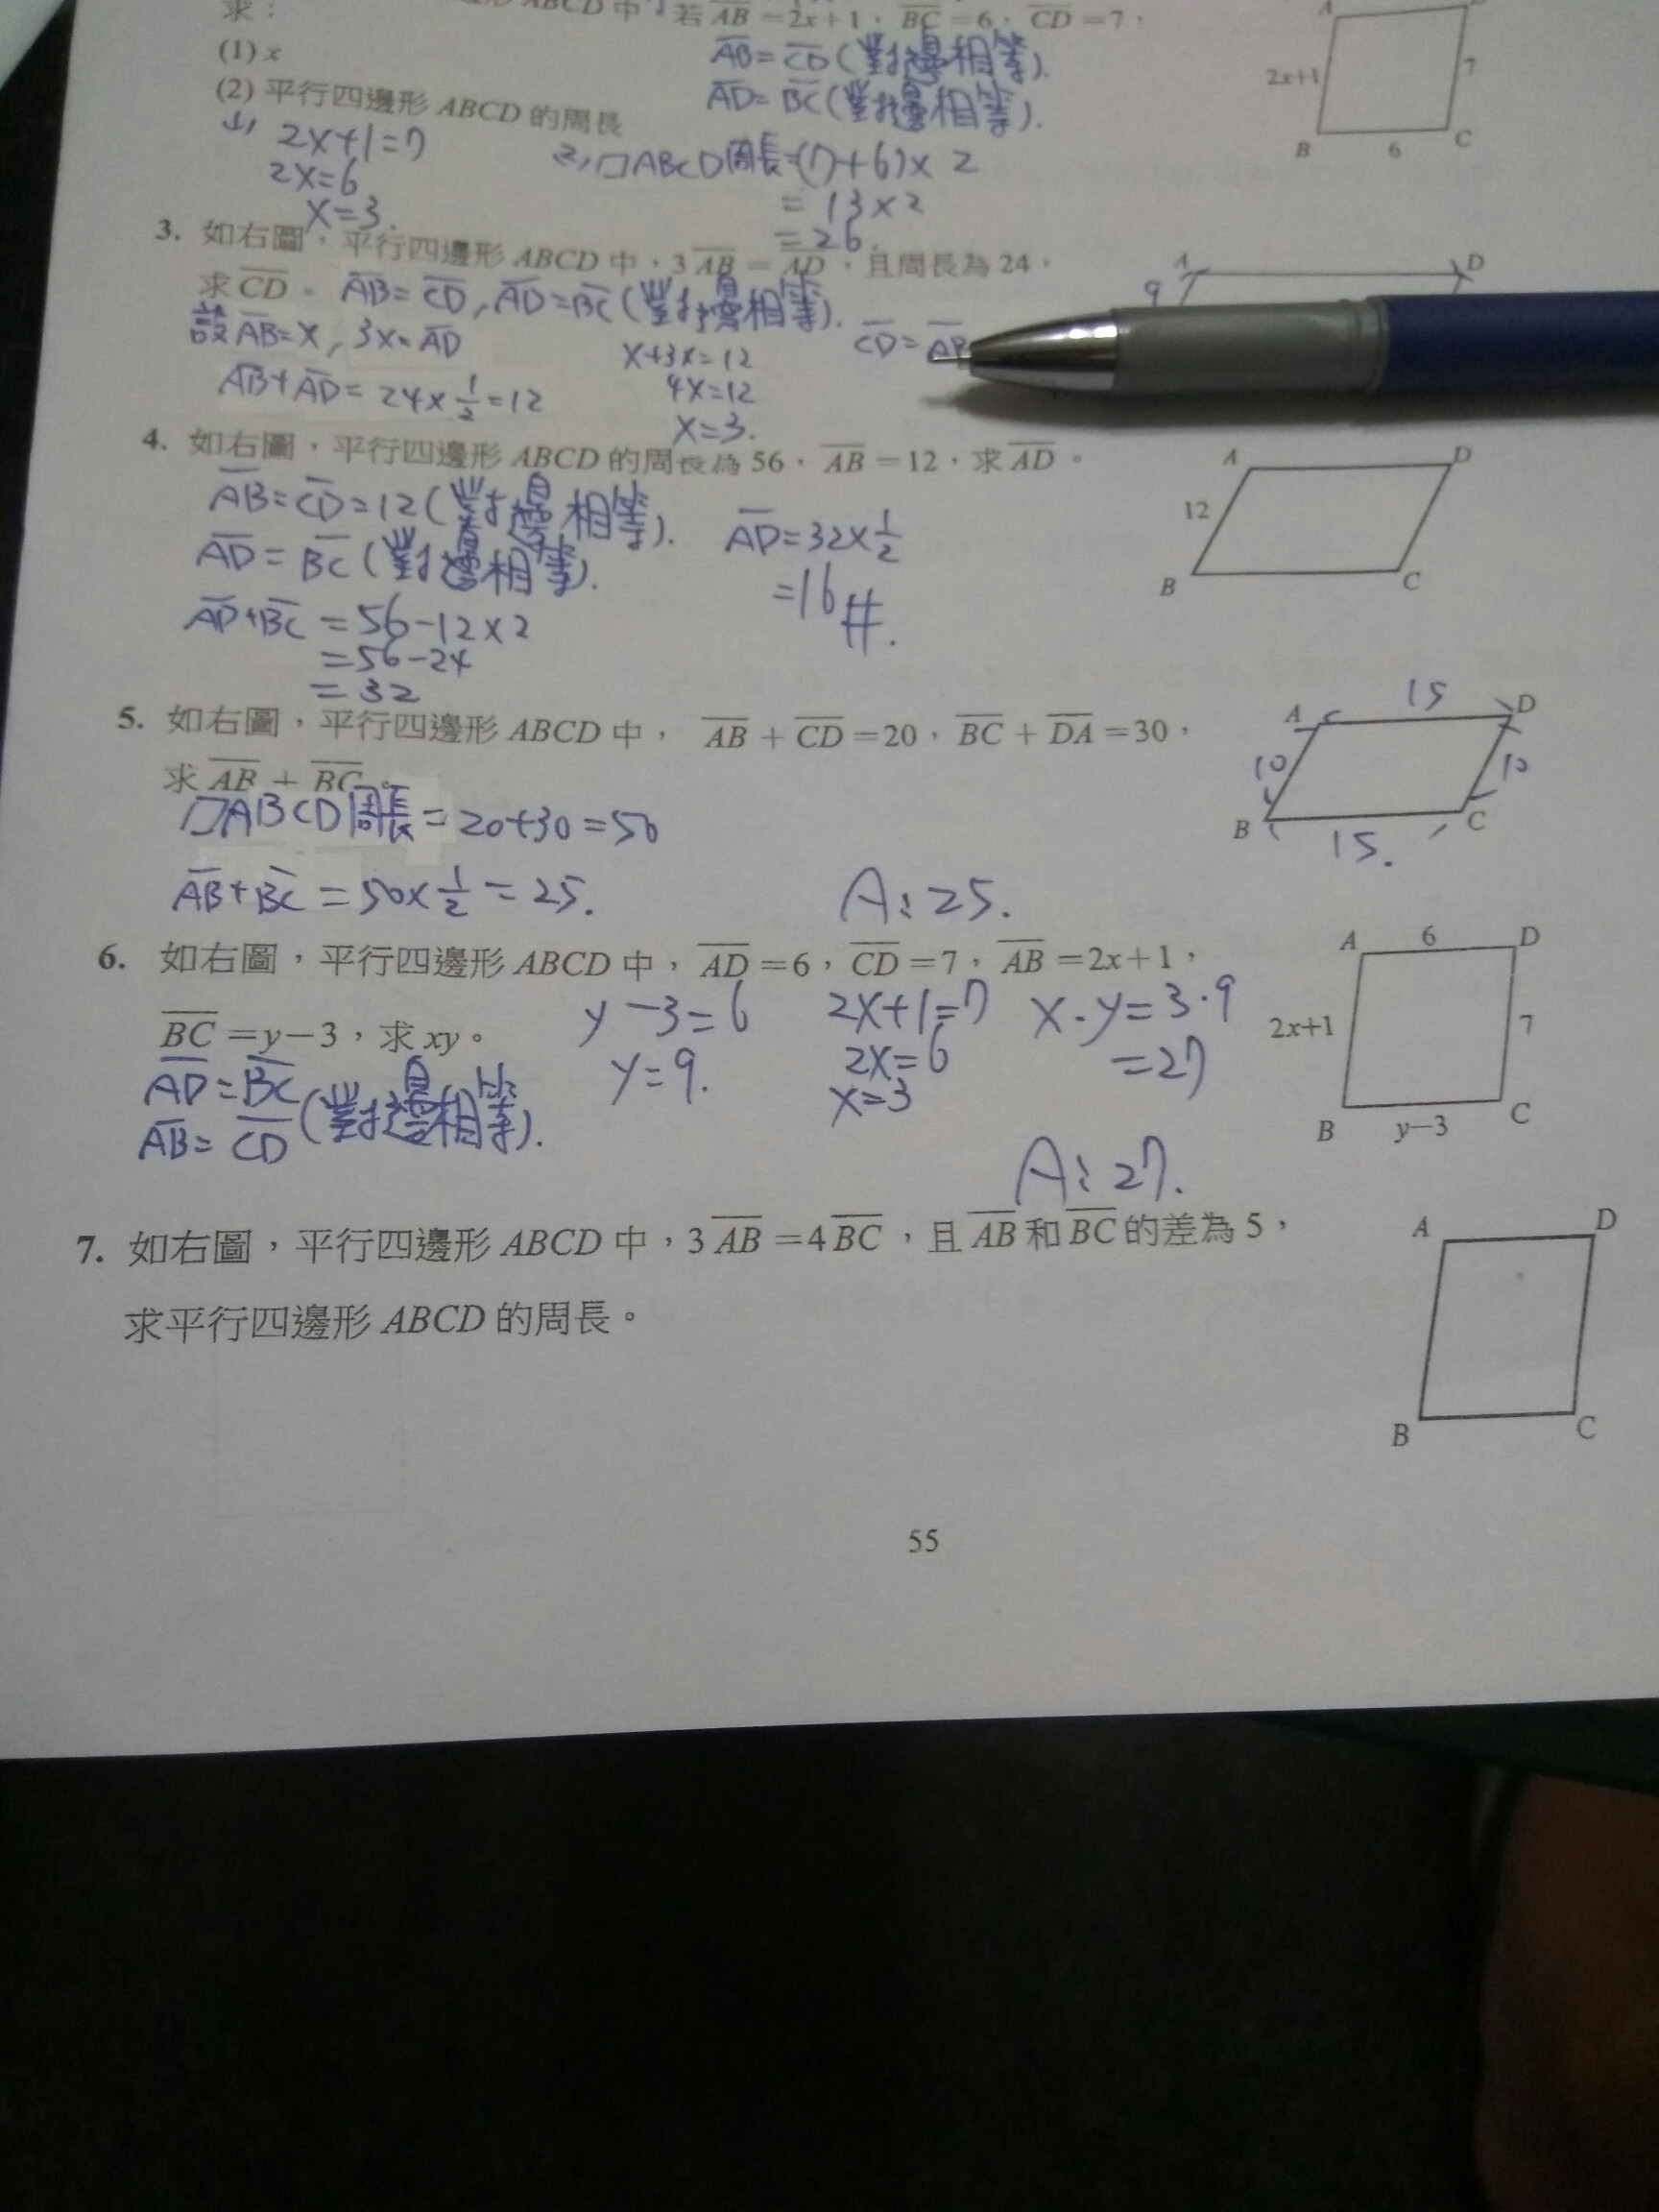 求:
ABCD 中,若 AB=2x+1,BC=6,CD=7,
(1) x
(2) 平行四邊形 ABCD 的周長
AB=CD(對邊相等).
AD=BC(對邊相等).
A
2x+1
7
B
6
C
2x+1=7
2x=6
x=3.
2, ▱ABCD周長=(7+6)×2
=13×2
=26.
3. 如右圖,平行四邊形 ABCD 中,3AB=AD,且周長為 24,
求 CD。
AB=CD,AD=BC(對邊相等).
設AB=x, 3x=AD
AB+AD=24×1/2=12
x+3x=12
4x=12
x=3.
CD=AB
A
D
9
4. 如右圖,平行四邊形 ABCD 的周長為 56,AB=12,求 AD。
AB=CD=12(對邊相等).
AD=BC(對邊相等).
AD+BC=56-12×2
=56-24
=32
AD=32×1/2
=16#.
A
D
12
B
C
5. 如右圖,平行四邊形 ABCD 中, AB+CD=20,BC+DA=30,
求 AB+BC。
▱ABCD周長=20+30=50
AB+BC=50×1/2=25.
A:25.
15
A
D
10
10
B
C
15.
6. 如右圖,平行四邊形 ABCD 中,AD=6,CD=7,AB=2x+1,
BC=y-3,求 xy。
AD=BC
AB=CD(對邊相等).
y-3=6
y=9.
2x+1=7
2x=6
x=3
x·y=3·9
=27
A:27.
A
6
D
2x+1
7
B
y-3
C
7. 如右圖,平行四邊形 ABCD 中,3AB=4BC,且 AB 和 BC 的差為 5,
求平行四邊形 ABCD 的周長。
A
D
B
C
55